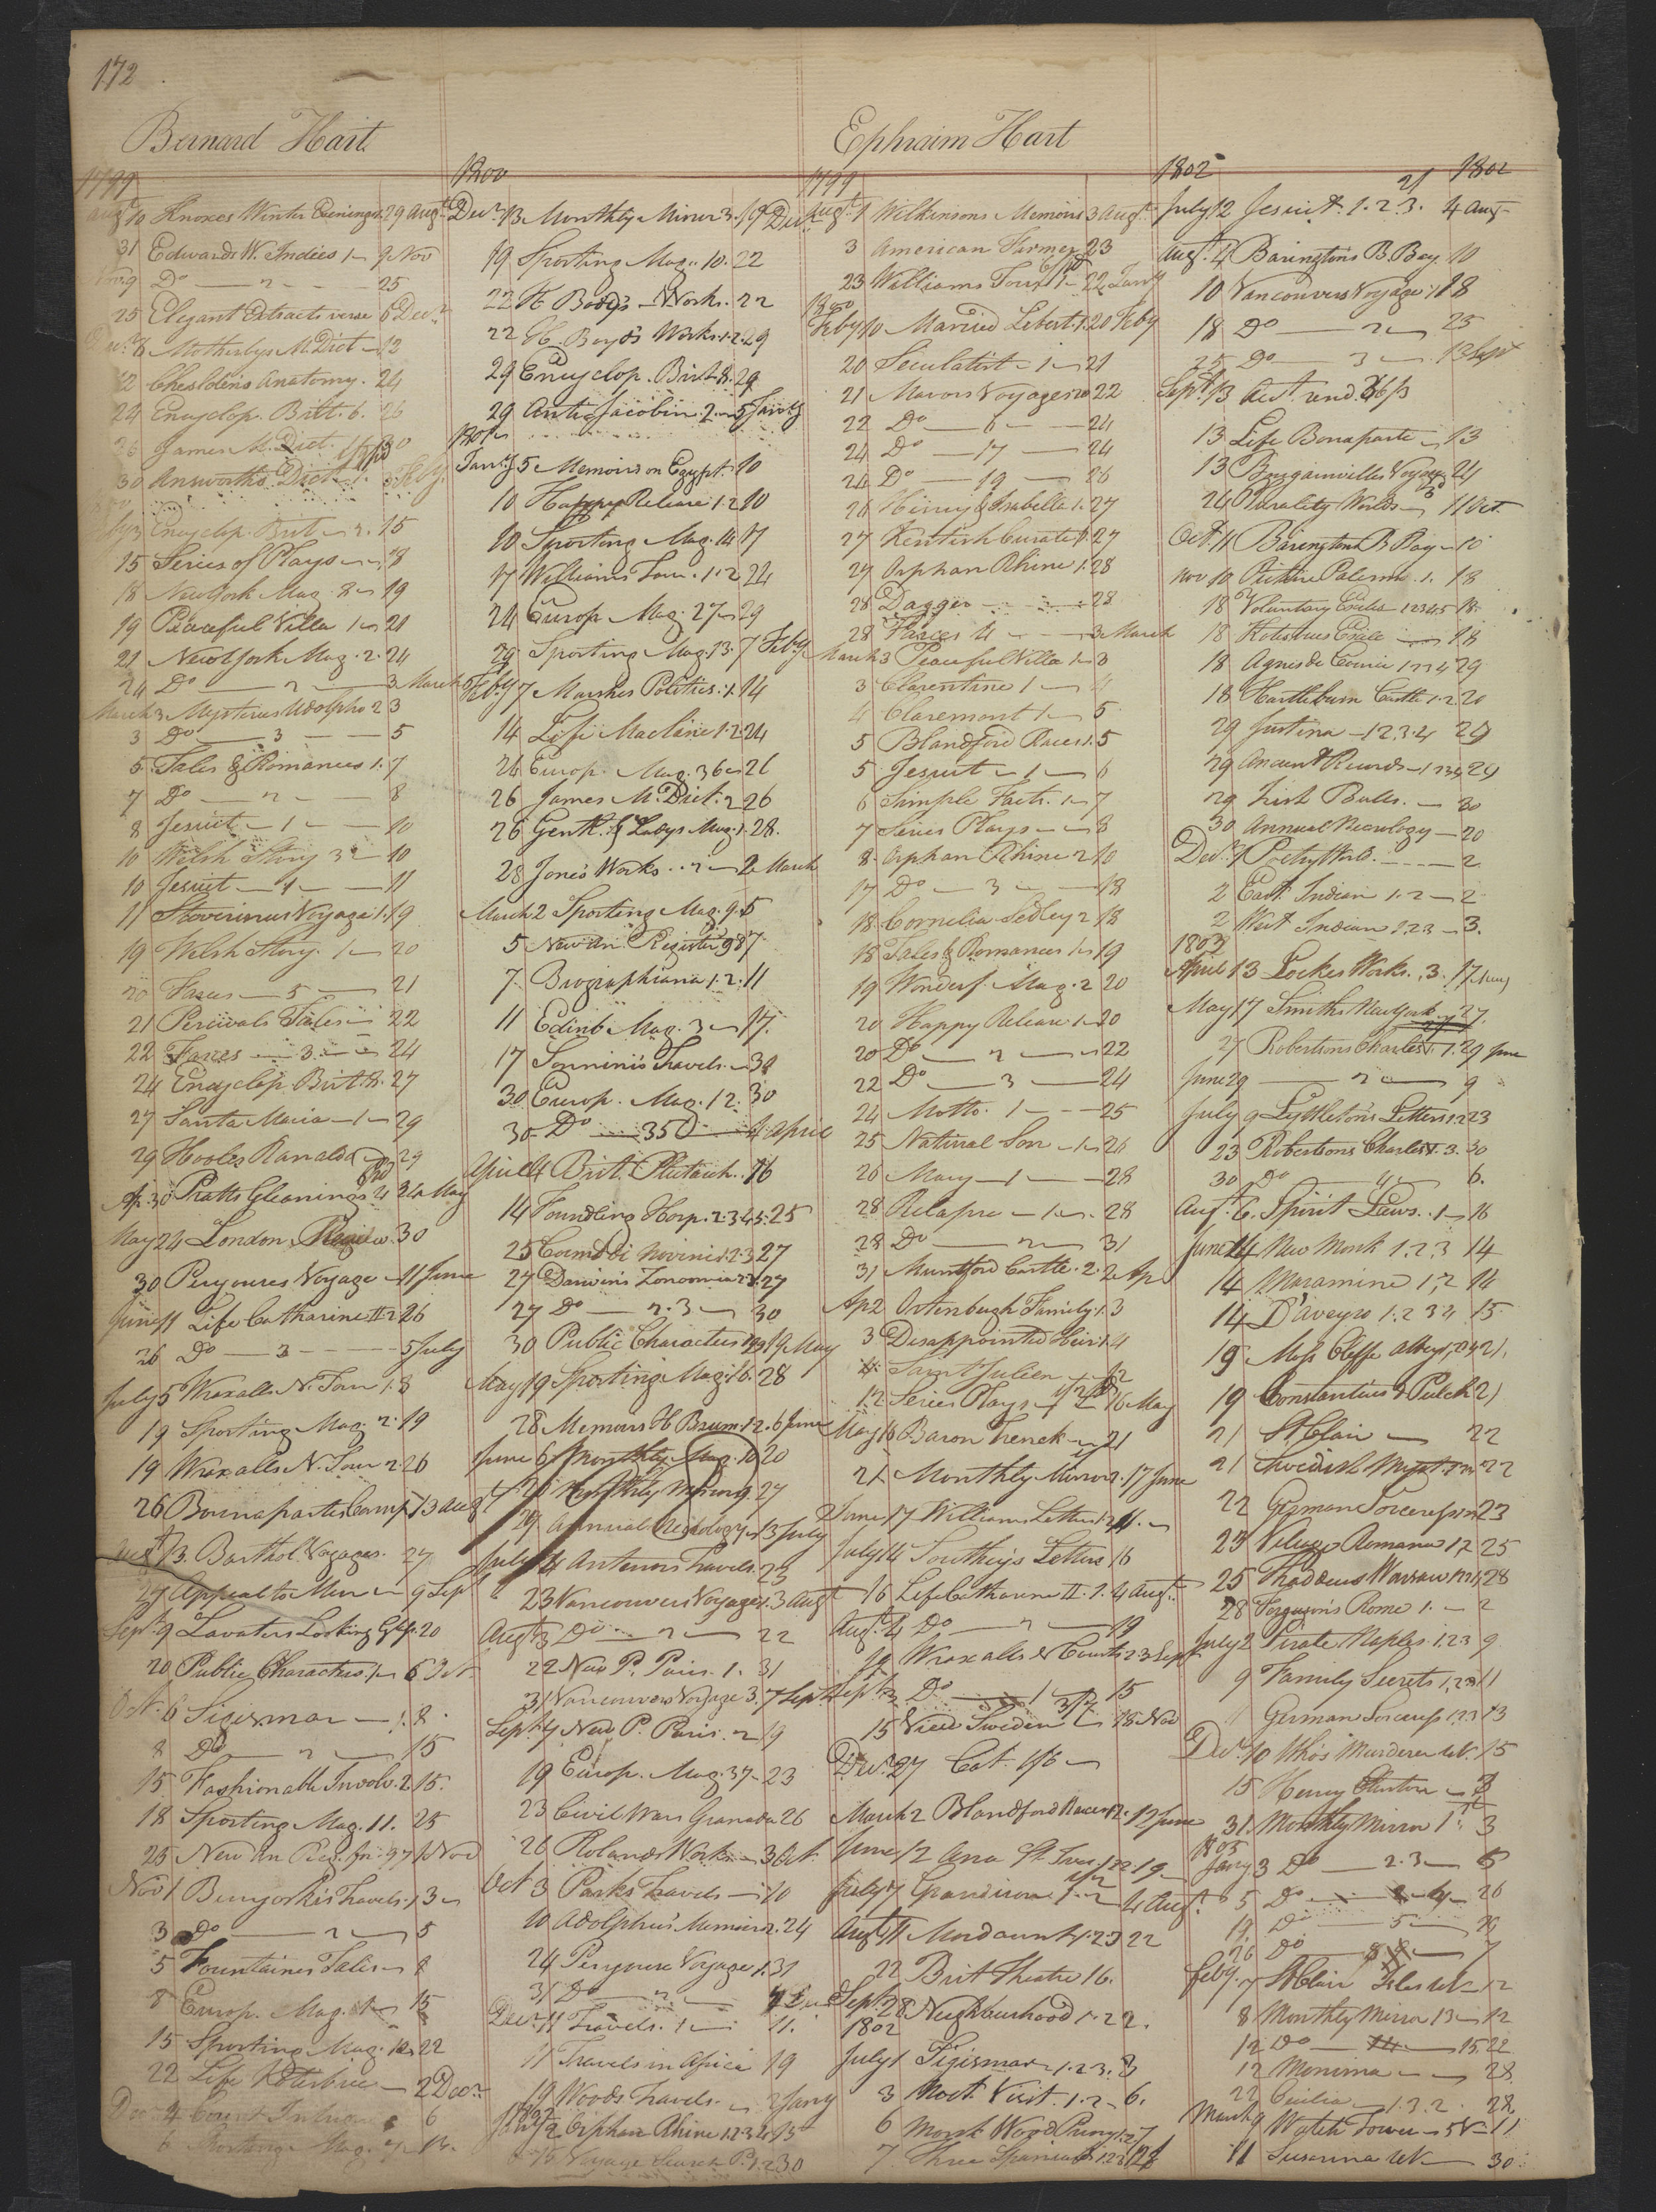 172
Bernard Hart
1799
Augt 10 Knoxes Winter Evenings 1. 29 Augt
31 Edwards W. Indies 1 9 Nov
Nov 9 Do 2 25
25 Elegant Extracts verse 6 Decr
Decr 6 Motherbys M. Dict 12
12 Cheseldens Anatomy. 24
24 Encyclop. Britt. 6. 26
26 James M. Dict. 1 30
30 Ainsworths Dict 1. Feby.
3 Encyclop. Brit 2. 15
15 Series of Plays 18
18 New York Mag. 8 19
19 Peaceful Villa 1 21
21 New York Mag. 2. 24
24 Do 2 3 March
March 3 Mysteries Udolpho 2 3
3 Do 3 5
5 Tales & Romances 1. 7
7 Do 2 8
8 Jesuit 1 10
10 Welsh Story 3 10
10 Jesuit 1 11
11 Stavorinus Voyage 1. 19
19 Welsh Story. 1 20
20 Farces 5 21
21 Percivals Tales 22
22 Farces 3 24
24 Encyclop. Brit. 8. 27
27 Santa Maria 1 29
29 Hools Ranaldo 29
Ap. 30 Pratts Gleanings 24 May
May 24 London Review 30
30 Perouses Voyage 11 June
June 11 Life Catharine II 2 26
26 Do 3 5 July
July 5 Wraxalls N. Tour 1. 8
19 Sporting Mag. 2. 19
19 Wraxalls N. Tour 2. 26
26 Bounaparte Camp. 13 Augt
Augt 13. Barthol. Voyages. 27
27 Appeal to Men 9 Sep.
Sept 9 Lavaters Looking Glass. 20
20 Public Characters 1 6 Oct
Oct. 6 Sigismar 1. 8
8 Do 2 15
15 Fashionable Involv. 2 15.
18 Sporting Mag. 11. 25
25 New An Reg. for 97 1 Nov
Nov 1 Benyowskis Travels. 1 3
3 Do 2 5
5 Fountaines Tales 8
8 Europ. Mag. 15
15 Sporting Mag. 12 22
22 Life 2 Decr
Decr 2 Count 6
6 Sporting Mag. 7 13.
1800
Decr 13 Monthly Mirror 3. 19 Decr
19 Sporting Mag. 10. 22
22 H. Boyd's Works. 22
22 H. Boyd's Works. 1. 2. 29
29 Encyclop. Brit 8. 29
29 Anti Jacobin. 2 5 Jany
1801
Jany 5 Memoirs on Egypt. 10
10 Happy Release 1. 2 10
10 Sporting Mag. 14 17
17 Williams Tour. 1. 2 24
24 Europ Mag. 27 29
29 Sporting Mag. 13. 7 Feby
Feby 7 Marshes Politics. 1. 14
14 Life Maclaine 1. 2. 24
24 Europ. Mag. 36 26
26 James M. Dict. 2 26
26 Gentl. & Ladys Mag. 1. 28.
28 Jones Works 2 2 March
March 2 Sporting Mag. 9. 5
5 New An Register 98 7.
7. Biographiana 1. 2. 11
11 Edinb. Mag. 3 17.
17 Sonninis Travels 30
30 Europ. Mag. 12. 30
30 Do 35 4 April
April 4 Brit. Plutarch. 16
14 Foundling Hosp. 2. 3 4 5. 25
25 Corn di Novini 1. 2. 3 27
27 Darwins Zoonomia 27
27 Do 2. 3 30
30 Public Characters 19 May
May 19 Sporting Mag. 16. 28
28 Memoirs H Baum. 1. 2. 6 June
June 6 Monthly Mag. 10 20
20 Monthly Mirror 9. 27
27 Annual Necrology 13 July
July 14 Antenors Travels. 23
23 Vancouvers Voyage 1. 3 Augt
Augt 3 Do 2 22
22 New P. Paris. 1. 31
31 Vancouvers Voyage 3. 7 Sept
Sept. 7 New P. Paris. 2 19
19 Europ. Mag. 37 23
23 Civil Wars Granada 26
26 Rolands Works 3 Oct.
Oct 3 Parks Travels 10
10 Adolphus Memoirs 2. 24
24 Perouse Voyage 1. 31
31 Do 2 Dec
Decr 11 Travels. 1 11.
11 Travels in Africa 19
19 Woods Travels. 2 Jany
2 Orphan Rhine 1 2 3 4. 15
15 Voyage Search P. 1. 2 30
Ephraim Hart
1799
Augt 1 Wilkinsons Memoirs 3 Augt
3 American Farmer 23
23 Williams Tour 1 22 Jany
1800
Feby 10 Married Libert. 1. 20 Feby
20 Seculatist 1 21
21 Mavors Voyages 20 22
22 Do 6 24
24 Do 17 24
24 Do 19 26
26 Henry & Isabella 1. 27
27 Kentish Curate 1. 27
27 Orphan Rhine 1. 28
28 Dagger 28
28 Farces 4 3 March
March 3 Peaceful Villa 1 3
3 Clarentine 1 4
4 Claremont 1 5
5 Blandford Races 1. 5
5 Jesuit 1 6
6 Simple Facts. 1 7
7 Series Plays 8
8. Orphan Rhine 2 10
17 Do 3 18
18 Cornelia Sedley 2 18
18 Tales & Romances 1 19
19 Wonderf. Mag. 2 20
20 Happy Release 1 20
20 Do 2 22
22 Do 3 24
24 Motto. 1 25
25 Natural Son 1 26
26 Mary 1 28
28 Relapse 1 28
28 Do 2 31
31 Muntford Castle. 2. 2 Ap
Ap 2 Ortenburgh Family 1. 3
3 Disappointed Heir 1. 4
4 Saint Julien 12
12 Series Plays 16 May
May 16 Baron Trenck 21
21 Monthly Mirror 2. 17 June
June 17 Williams Letters 1. 2 11.
July 14 Southey's Letters 16
16 Life Catharine II. 1. 4 Augt
Augt 4 Do 2 19
19 Wraxalls N Courts 2. 3 Sept
Sept 3 Do 1 15
15 View Sweden 18 Nov
Decr 27 Cat. 1/6
March 2 Blandford Races 12 June
June 12 Ana St. Ives 1 2 2. 19
July 7 Grandison 1. 2 4 Augt
Augt 11 Mordaunt 1. 2 3 22
22 Brit Theatre 16.
Sept 28 Neighbourhood 1. 2 2.
1802
July 1 Sigismar 1. 2. 3. 3
3 Noct Visit. 1. 2 6.
6 Monk Wood Priory 1. 2 7
7 Three Spaniards 1. 2 3 12
1802
July 12 Jesuit. 1. 2. 3. 4 Aug
Augt 4 Baringtons B. Bay. 10
10 Vancouvers Voyage 1 18
18 Do 2 25
25 Do 3 13 Sept
Sept 13 Act. und. 3/6
13 Life Bonaparte 13
13 Bougainvilles Voyage 24
24 Plurality Worlds 11 Oct.
Oct. 11 Barington B Bay 10
Nov 10 Picture Palermo. 1. 18
18 Voluntary Exiles 1 2 3 4 5 18.
18 Kotsbues Exile 18
18 Agnes de Courci 1 2 3 4 29
18 Hartlebourn Castle 1. 2. 20
29 Justina 1 2. 3. 4 29
29 Ancient Records 1 2 3 4 29
29 Irish Bulls. 30
30 Annual Necrology 20
Decr 1 Poetry World. 2.
2 East. Indian 1. 2 2.
2 West Indian 1. 2. 3 3.
1803
April 13 Lockes Works. 3. 17 May
May 17 Smiths New York 27.
27 Robertsons Charles V. 1. 29 June
June 29 2 9
July 9 Lyttletons Letters 1. 2 23
23 Robertsons Charles V. 3. 30
30 Do 4 6.
Augt 6. Spirit Laws. 1 16
June 14 New Monk 1. 2. 3 14
14 Maramine 1, 2 14
14 D'aveyro 1. 2 3 4 15.
19 Moss Cliffe Abbey 21.
19 Constantius & Pulch 21
21 St. Clair 22
21 Swedish Myst. 22
22 German Sorceress 23
23 Village Romance 1 2 25
25 Thaddeus Warsaw 1 2 3 4 28
28 Ferguson's Rome 1. 2
July 2 Pirate Naples 1. 2 3 9
9 Family Secrets 1. 2 3 11
11 German Sorceress 1 2 3 13
Decr 10 Who's Murderer 15
15 Henry Clinton
31. Monthly Mirror 1. 3
1805
Jany 3 Do 2. 3 5
5 Do 4 26
19 Do 5 26
26 Do 8 7
Feby. 7 St Clair Isles 12
8 Monthly Mirror 13 12
12 Do 14 15 22
12 Monima 28
22 Cecilia 1. 3. 2. 28
March 9 Watch Tower 5 V 11
11 Susanna 30